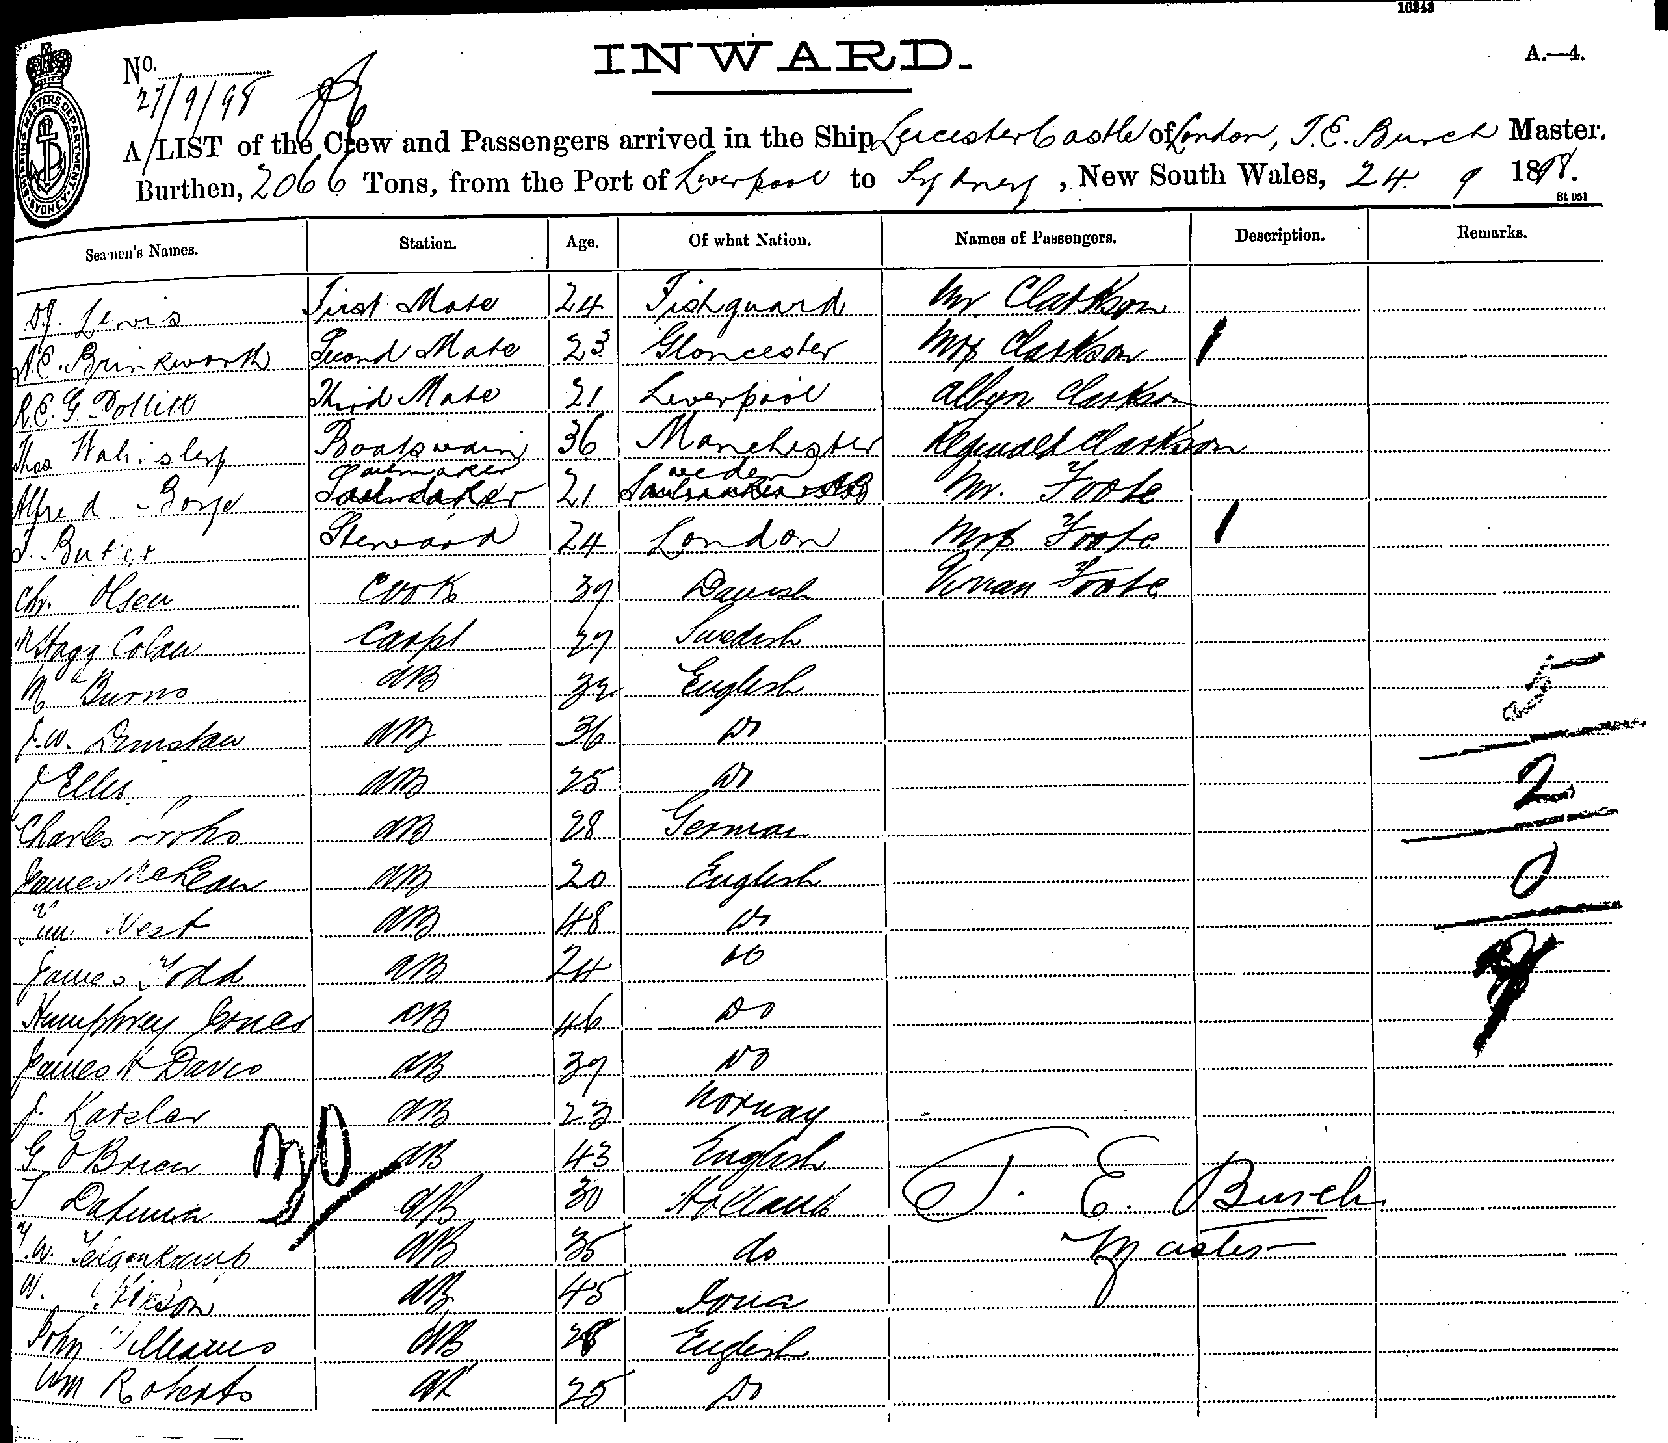 10343
INWARD.
A.—4.
No.
27/9/98
A LIST of the Crew and Passengers arrived in the Ship Leicester Castle of London, T. E. Burch Master.
Burthen, 2066 Tons, from the Port of Liverpool to Sydney, New South Wales, 24 9 1898.
St 051
Seamen's Names. Station. Age. Of what Nation. Names of Passengers. Description. Remarks.
Lewis First Mate 24 Fishguard Mr Clarkson
Brinkworth Second Mate 23 Gloncester Mrs Clarkson 1
R.E.G. Pollitt Third Mate 21 Liverpool Albyn Clarkson
Thos Boatswain 36 Manchester Reginald Clarkson
Alfred Sailmaker 21 Sweden Mr. Foote
Steward 24 London Mrs Foote 1
Chr. Olsen Cook 39 Danish Vivian Foote
Carpt 27 Swedish
Burns AB 32 English
J.W. AB 36 Do
J Ellis AB 25 Do
Charles AB 28 German
James McLean AB 20 English
West AB 48 Do
James Todd AB 24 Do
Humphrey Jones AB 46 Do
James H Davis AB 39 Do
J. AB 23 Norway
G O'Brien AB 43 English
AB 30 Holland
AB 35 do
AB 45 Iona
John Williams AB 28 English
Wm Roberts AB 25 Do
5
2
0
T. E. Burch
Master